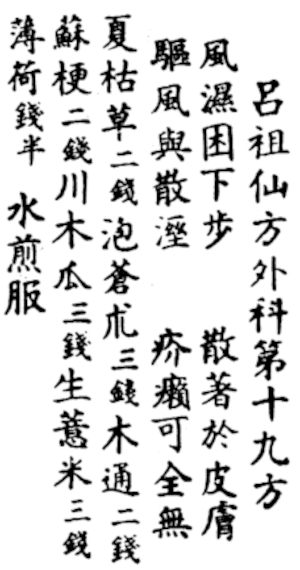 呂祖仙方外科第十九方
風濕困下步　散著於皮膚
驅風與散溼　疥癩可全無
夏枯草二錢泡蒼朮三錢木通二錢
蘇梗二錢川木瓜三錢生薏米三錢
薄荷錢半　水煎服